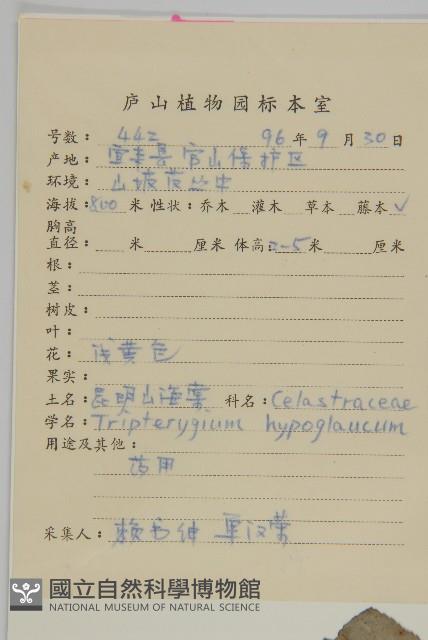 庐山植物园标本室
号数: 442 96年9月30日
产地: 宜丰县官山保护区
环境: 山坡灌丛中
海拔: 800米 性状: 乔木 灌木 草本 藤本 ✓
胸高
直径: 米 厘米 体高: 2-5米 厘米
根:
茎:
树皮:
叶:
花: 浅黄色
果实:
土名: 昆明山海棠 科名: Celastraceae
学名: Tripterygium hypoglaucum
用途及其他:
药用
采集人: 赖书绅
國立自然科學博物館
NATIONAL MUSEUM OF NATURAL SCIENCE